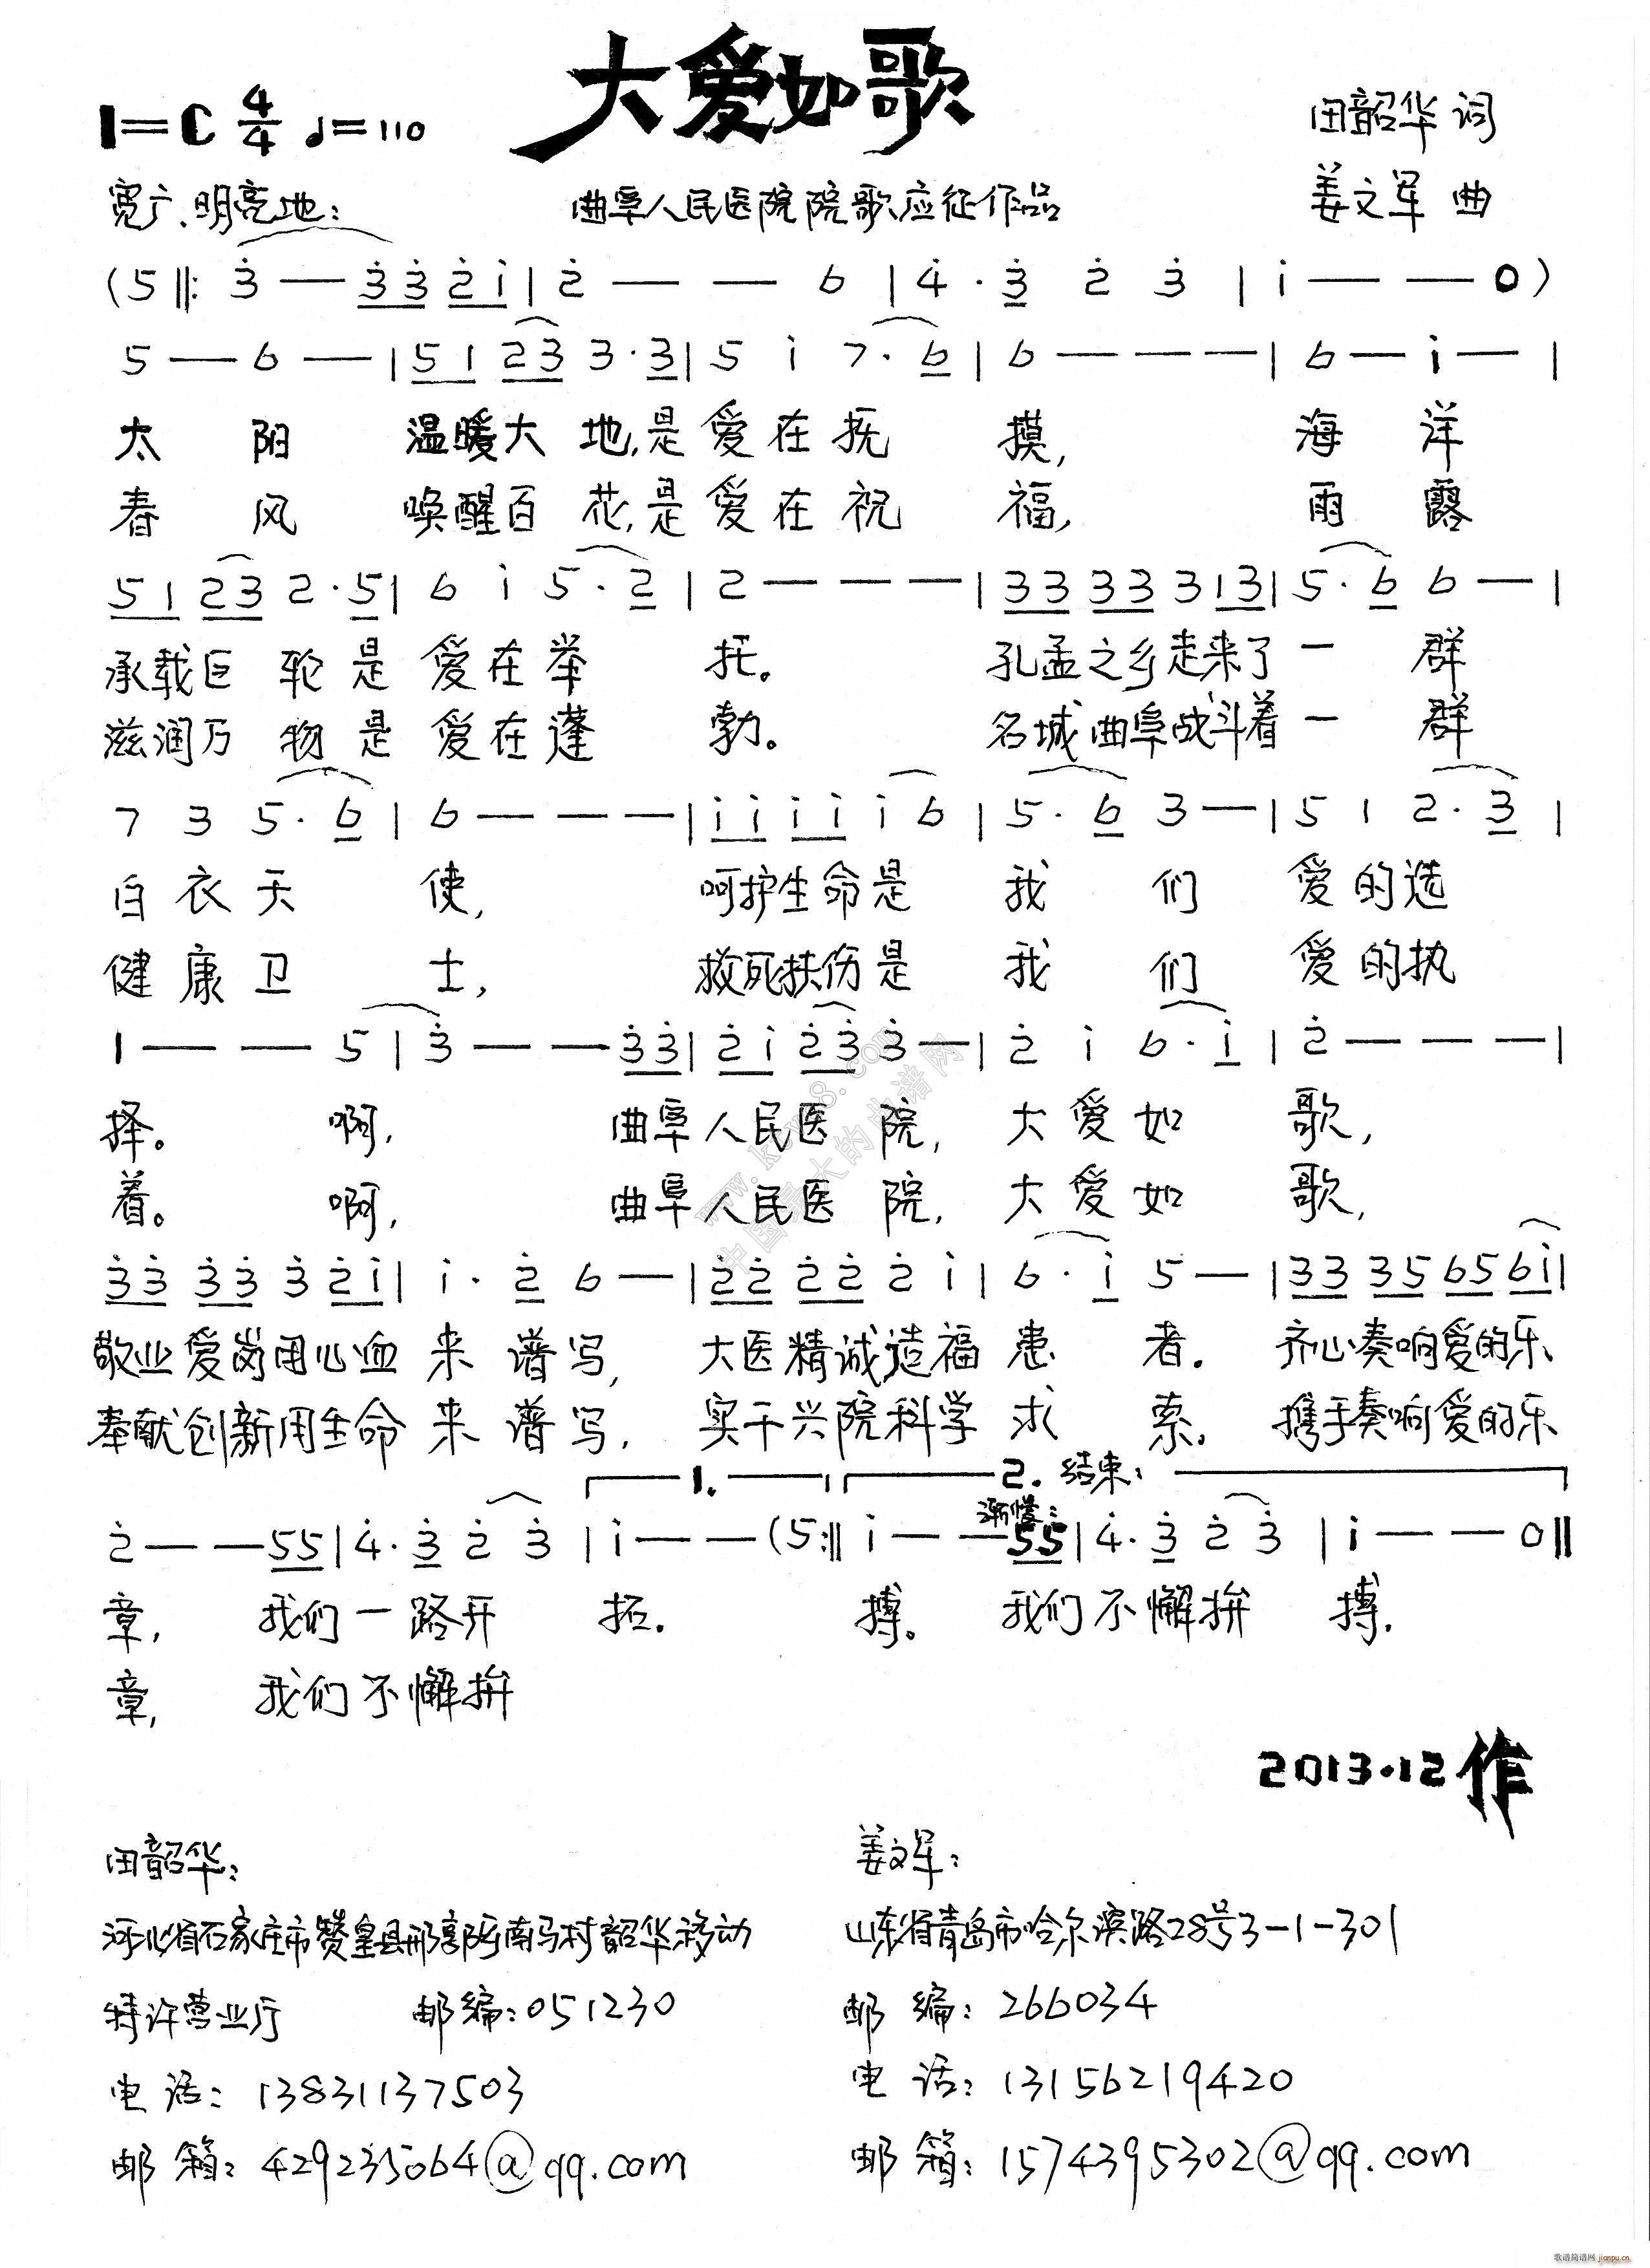 大爱如歌
1=C 4/4 ♩=110
田韶华 词
宽广、明亮地：
曲阜人民医院院歌应征作品
姜文军 曲
(5 ‖: 3̇ — 3̇3̇ 2̇1̇ | 2̇ — — 6 | 4̇ · 3̇ 2̇ 3̇ | 1̇ — — 0 )
5 — 6 — | 51 23 3·3 | 5 1̇ 7·6 | 6 — — — | 6 — 1̇ — |
太 阳 温暖大 地,是 爱在抚 摸, 海 洋
春 风 唤醒百 花,是 爱在祝 福, 雨 露
51 23 2·5 | 6 1̇ 5·2 | 2 — — — | 33 33 3 13 | 5·6 6 — |
承载巨 轮是 爱在举 托。 孔孟之乡走来了一 群
滋润万 物是 爱在蓬 勃。 名城曲阜战斗着一 群
7 3 5·6 | 6 — — — | 1̇1̇ 1̇1̇ 1̇ 6 | 5·6 3 — | 5 1 2·3 |
白衣天 使, 呵护生命是 我 们 爱的选
健康卫 士, 救死扶伤是 我 们 爱的执
1 — — 5 | 3̇ — — 3̇3̇ | 2̇1̇ 2̇3̇ 3̇ — | 2̇ 1̇ 6·1̇ | 2̇ — — — |
择。 啊, 曲阜人民医 院, 大爱如 歌,
着。 啊, 曲阜人民医 院, 大爱如 歌,
3̇3̇ 3̇3̇ 3̇ 2̇1̇ | 1̇· 2̇ 6 — | 2̇2̇ 2̇2̇ 2̇ 1̇ | 6·1̇ 5 — | 33 35 65 61̇ |
敬业爱岗用心血 来 谱写, 大医精诚造福 患 者. 齐心奏响爱的乐
奉献创新用生命 来 谱写, 实干兴院科学 求 索. 携手奏响爱的乐
1. 2. 结束：
渐慢：
2̇ — — 55 | 4̇·3̇ 2̇ 3̇ | 1̇ — — (5 :‖ 1̇ — — 55 | 4̇·3̇ 2̇ 3̇ | 1̇ — — 0 ‖
章, 我们一路开 拓. 搏。 我们不懈拚 搏.
章, 我们不懈拚
2013·12作
田韶华：
姜文军：
河北省石家庄市赞皇县邢郭乡南马村韶华移动
山东省青岛市哈尔滨路28号3-1-301
特许营业厅 邮编：051230
邮编：266034
电话：13831137503
电话：13156219420
邮箱：429235064@qq.com
邮箱：1574395302@qq.com
www.ktvc8.com
中国最大的曲谱网
歌谱简谱网
jianpu.cn